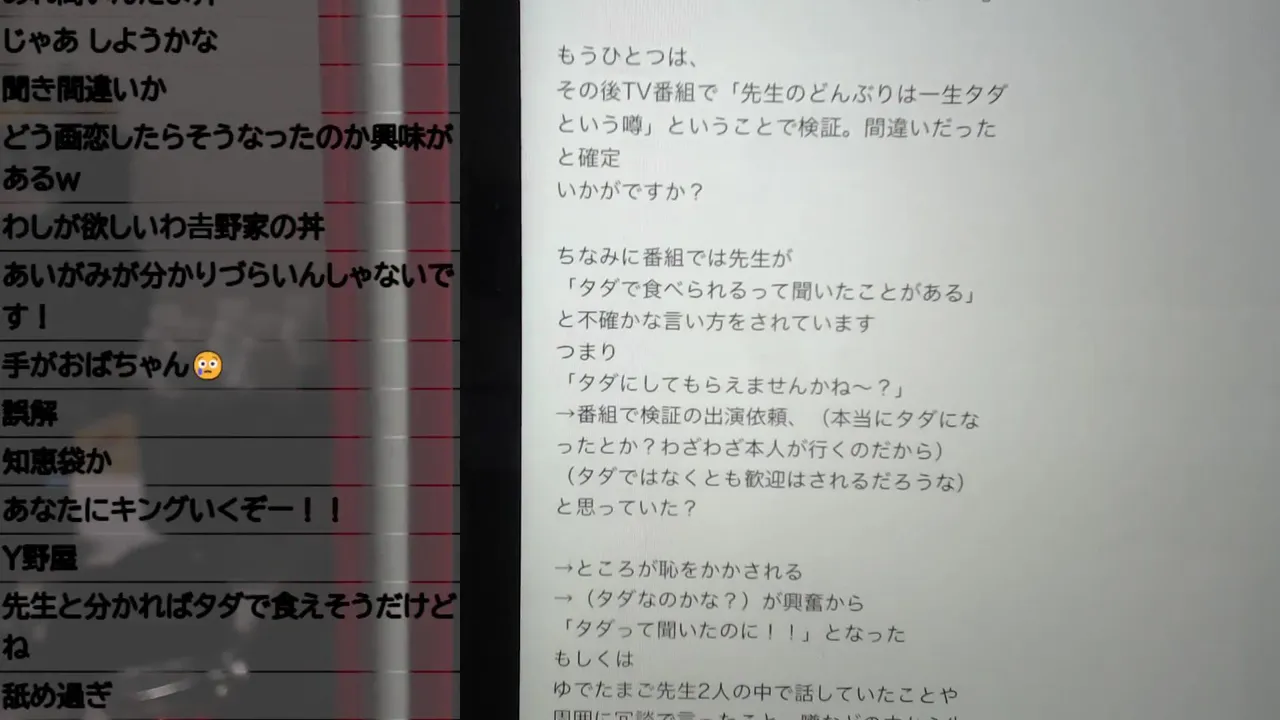 じゃあ しようかな
聞き間違いか
どう画恋したらそうなったのか興味が
あるw
わしが欲しいわ吉野家の丼
あいがみが分かりづらいんしゃないで
す！
手がおばちゃん😢
誤解
知恵袋か
あなたにキングいくぞー！！
Y野屋
先生と分かればタダで食えそうだけど
ね
舐め過ぎ
もうひとつは、
その後TV番組で「先生のどんぶりは一生タダ
という噂」ということで検証。間違いだった
と確定
いかがですか？
ちなみに番組では先生が
「タダで食べられるって聞いたことがある」
と不確かな言い方をされています
つまり
「タダにしてもらえませんかね〜？」
→番組で検証の出演依頼、（本当にタダにな
ったとか？わざわざ本人が行くのだから）
（タダではなくとも歓迎はされるだろうな）
と思っていた？
→ところが恥をかかされる
→（タダなのかな？）が興奮から
「タダって聞いたのに！！」となった
もしくは
ゆでたまご先生2人の中で話していたことや